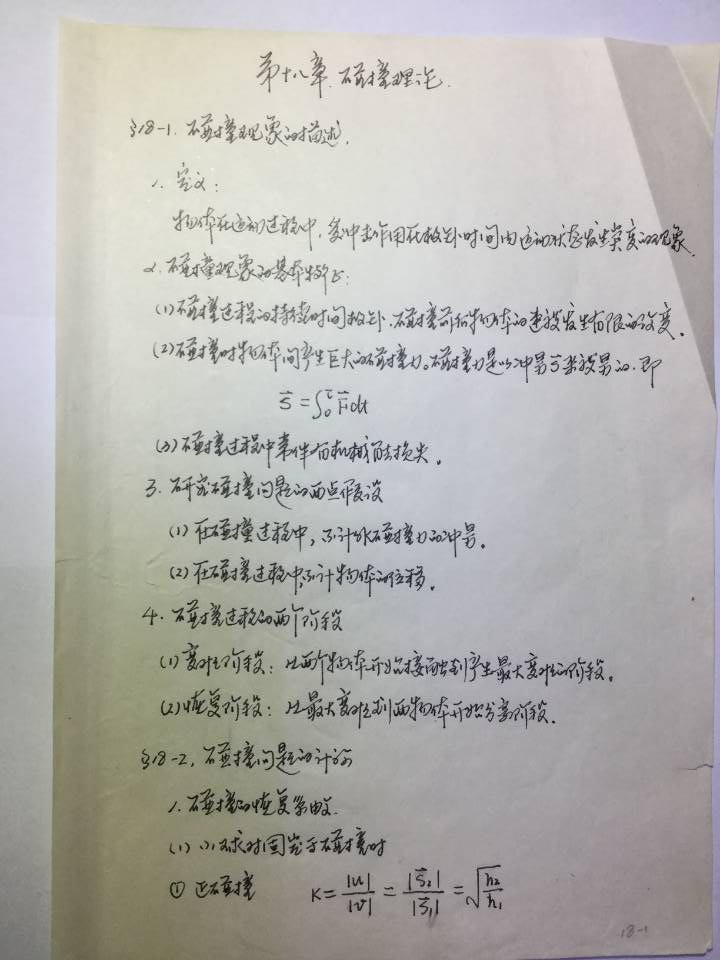 第十八章 碰撞理论
§18-1. 碰撞现象的描述.
1. 定义:
物体在运动过程中,受冲击作用在极短时间内运动状态发生突变的现象.
2. 碰撞现象的基本特征:
(1) 碰撞过程的持续时间极短,碰撞前后物体的速度发生有限的改变.
(2) 碰撞时物体间产生巨大的碰撞力。碰撞力是以冲量来度量的.即
S⃗ = ∫₀^τ F⃗dt
(3) 碰撞过程中伴有机械能损失.
3. 研究碰撞问题的两点假设
(1) 在碰撞过程中,不计非碰撞力的冲量.
(2) 在碰撞过程中,不计物体的位移.
4. 碰撞过程的两个阶段
(1) 变形阶段: 从两个物体开始接触到产生最大变形的阶段.
(2) 恢复阶段: 从最大变形到两物体开始分离阶段.
§18-2. 碰撞问题的计算
1. 碰撞的恢复系数.
(1) 小球对固定面碰撞时
① 正碰撞 K = |u|/|v| = |S⃗₂|/|S⃗₁| = √(h₂/h₁)
18-1